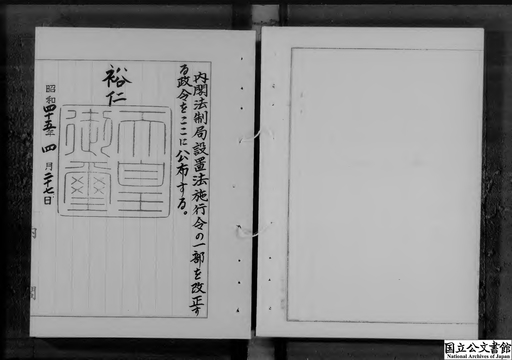 内閣法制局設置法施行令の一部を改正す
る政令をここに公布する。
裕仁
天皇
御璽
昭和四十五年四月二十七日
内閣
国立公文書館
National Archives of Japan